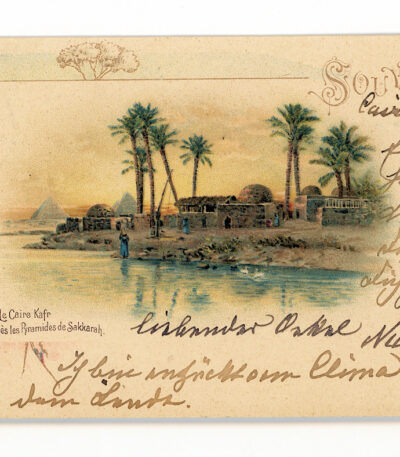 Sou
Cair
Le Caire Kafr
ès les Pyramides de Sakkarah.
liebender Onkel
Ich bin entzückt vom Clima
dem Lande.